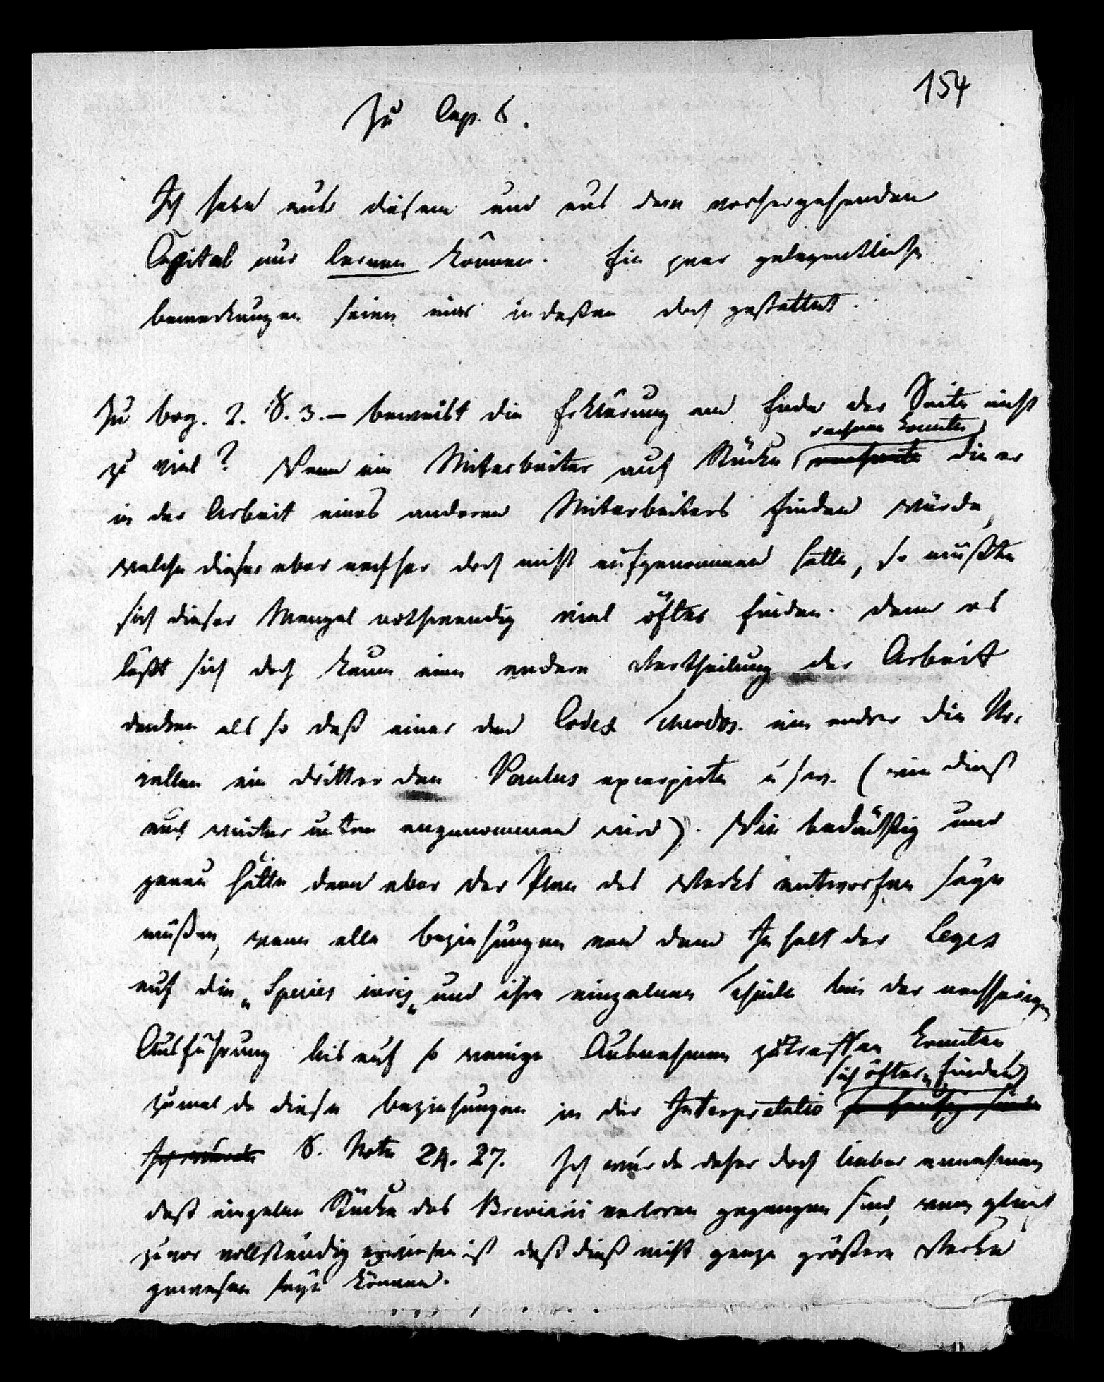 154
Zu Cap. 8.
Ich habe aus diesem und aus dem vorhergehenden
Capitel nur lernen können. Ein paar gelegentliche
bemerkungen seien mir indeßen doch gestattet.
Zu bog. 2. S. 3. – beweist die Erklärung am Ende der Seite nicht
rechnen konnte
zu viel? Wenn ein Mitarbeiter auf Stücke rechnete die er
in der Arbeit eines anderen Mitarbeiters finden würde,
welche dieser aber nachher doch nicht aufgenommen hätte, so müßte
sich dieser Mangel nothwendig viel öfter finden. denn es
läßt sich doch kaum eine andere Vertheilung der Arbeit
denken als so daß einer den Codex Theodos. ein andrer die No-
vellen ein dritter den Paulus excerpirte u.s.w. (wie dieß
auch weiter unten angenommen wird). Wie bedächtig und
genau hätte dann aber der Plan des Werks entworfen seyn
müßen, wenn alle beziehungen von dem Inhalt der Leges
auf die „Species iuris“ und ihre einzelnen Theile bei der nachherigen
Ausführung bis auf so wenige Ausnahmen zutreffen konnten
sich öfters finden
zumal da diese beziehungen in der Interpretatio so häufig sind.
Ich würde S. Note 24. 27. Ich würde daher doch lieber annehmen
daß einzelne Stücke des Breviarii verloren gegangen sind, wenn gleich
zuvor vollständig erwiesen ist daß dieß nicht ganze größere Werke
gewesen seyn können.